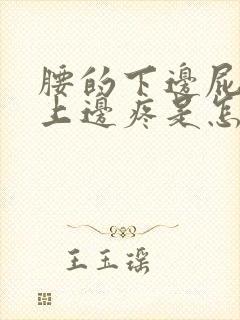 腰的下邊屁
上邊疼是怎
王玉瑶